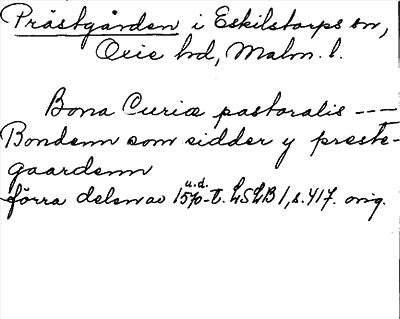 Prästgården i Eskilstorps sn,
Oxie hd, Malm. l.
Bona Curiæ pastoralis ---
Bondenn som sidder y preste-
gaardenn
förra delen av 1570-t. u.d. LSLB 1, s. 417. orig.